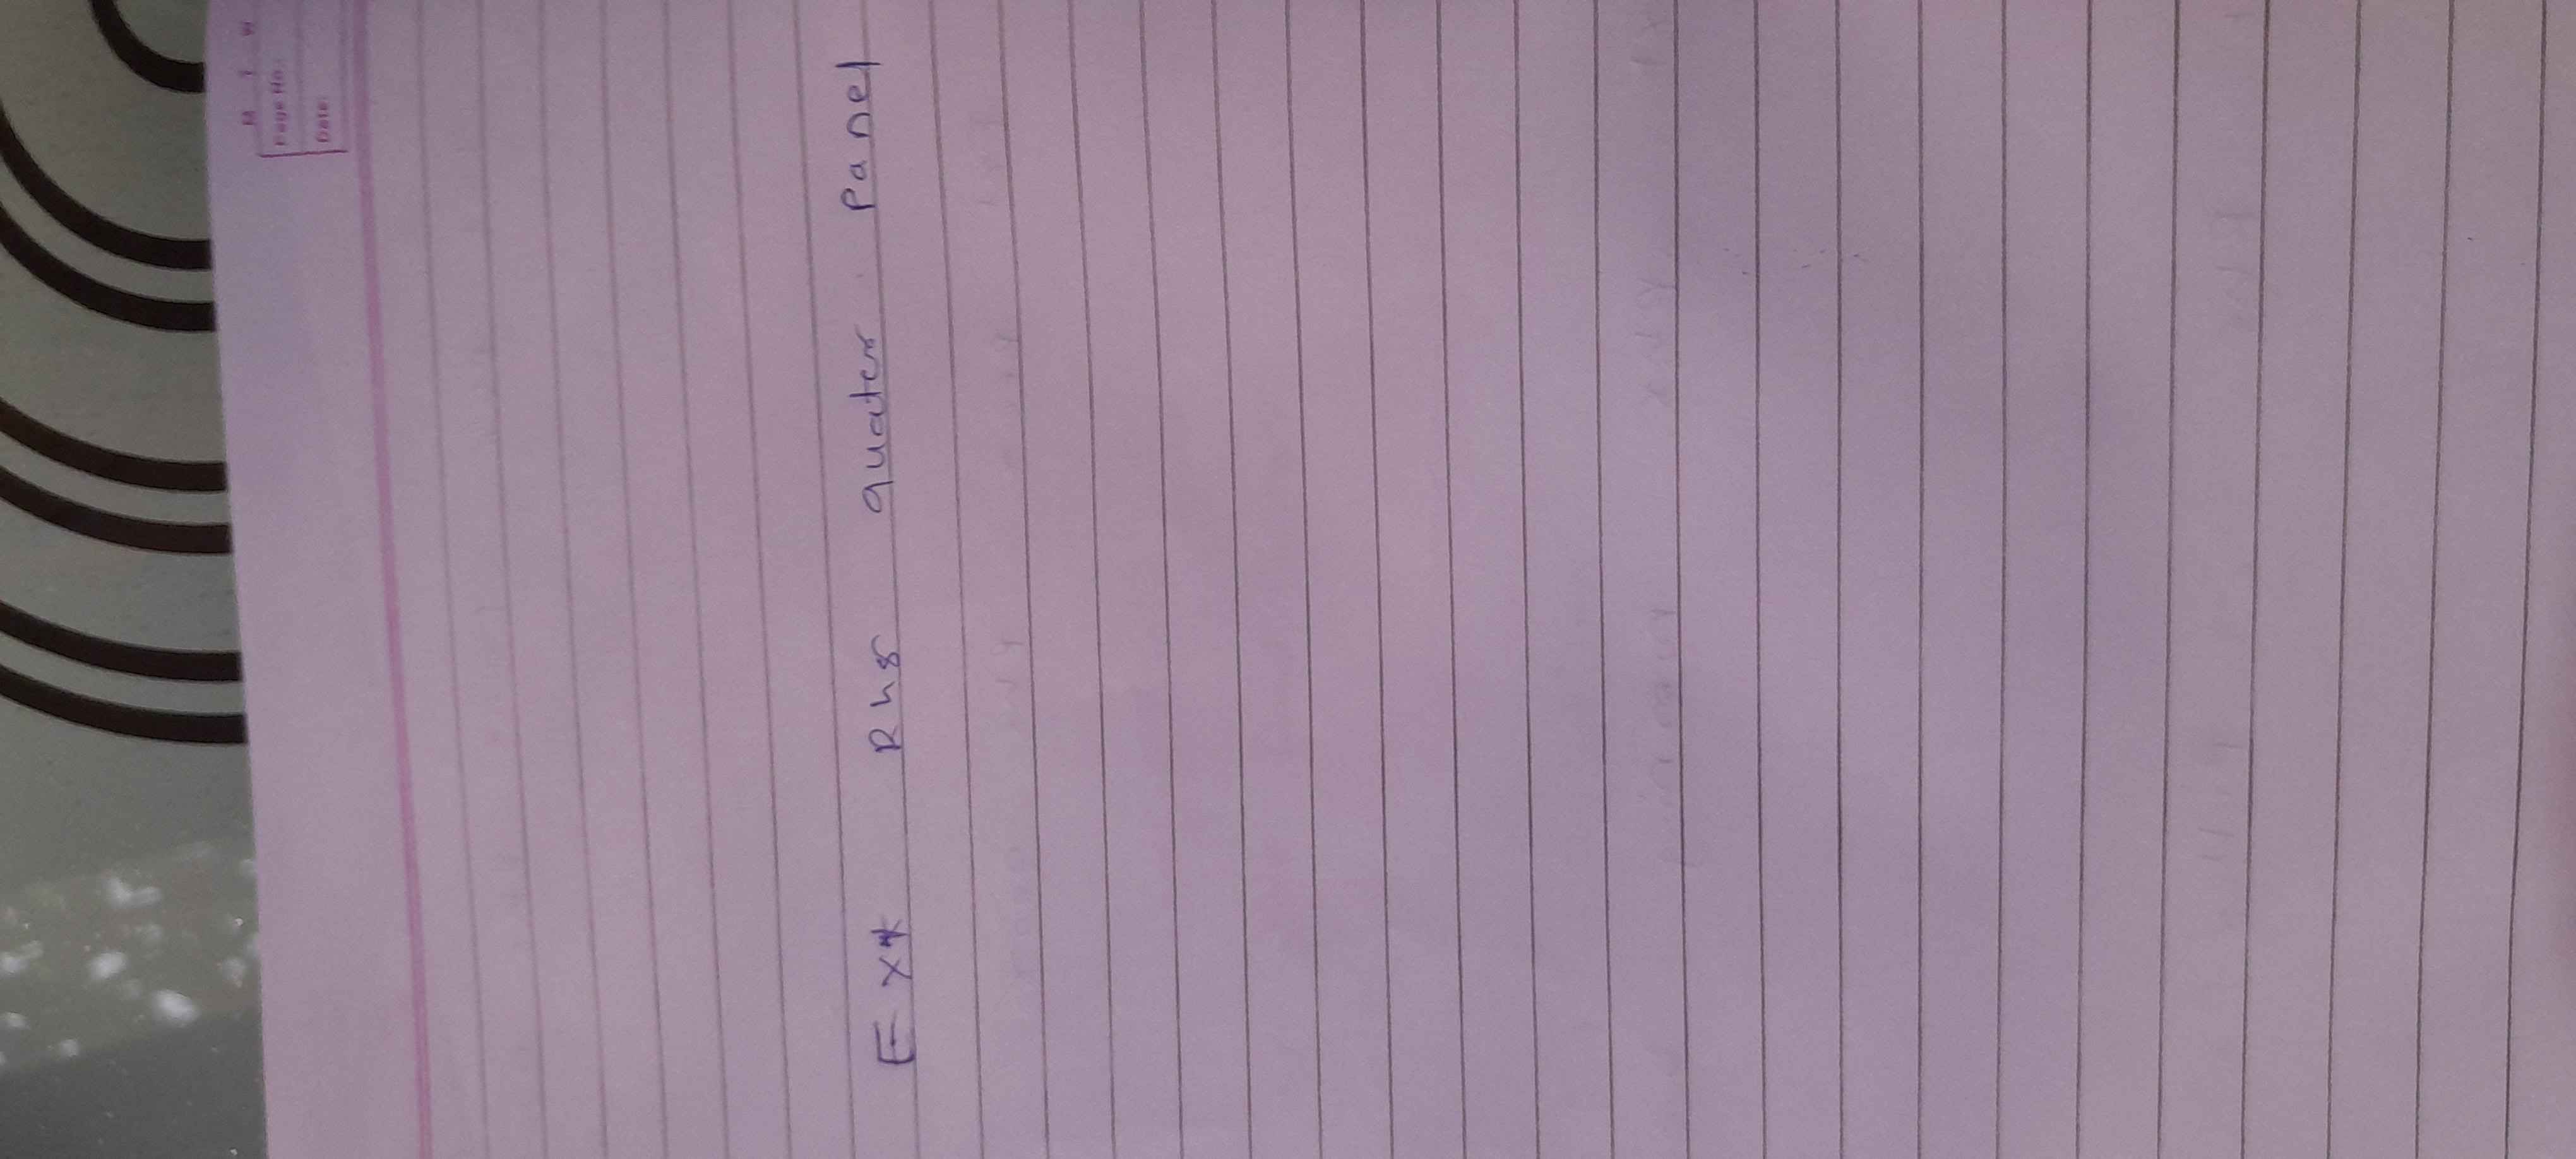 M T W
Page No.:
Date:
Ext Rhs quater panel